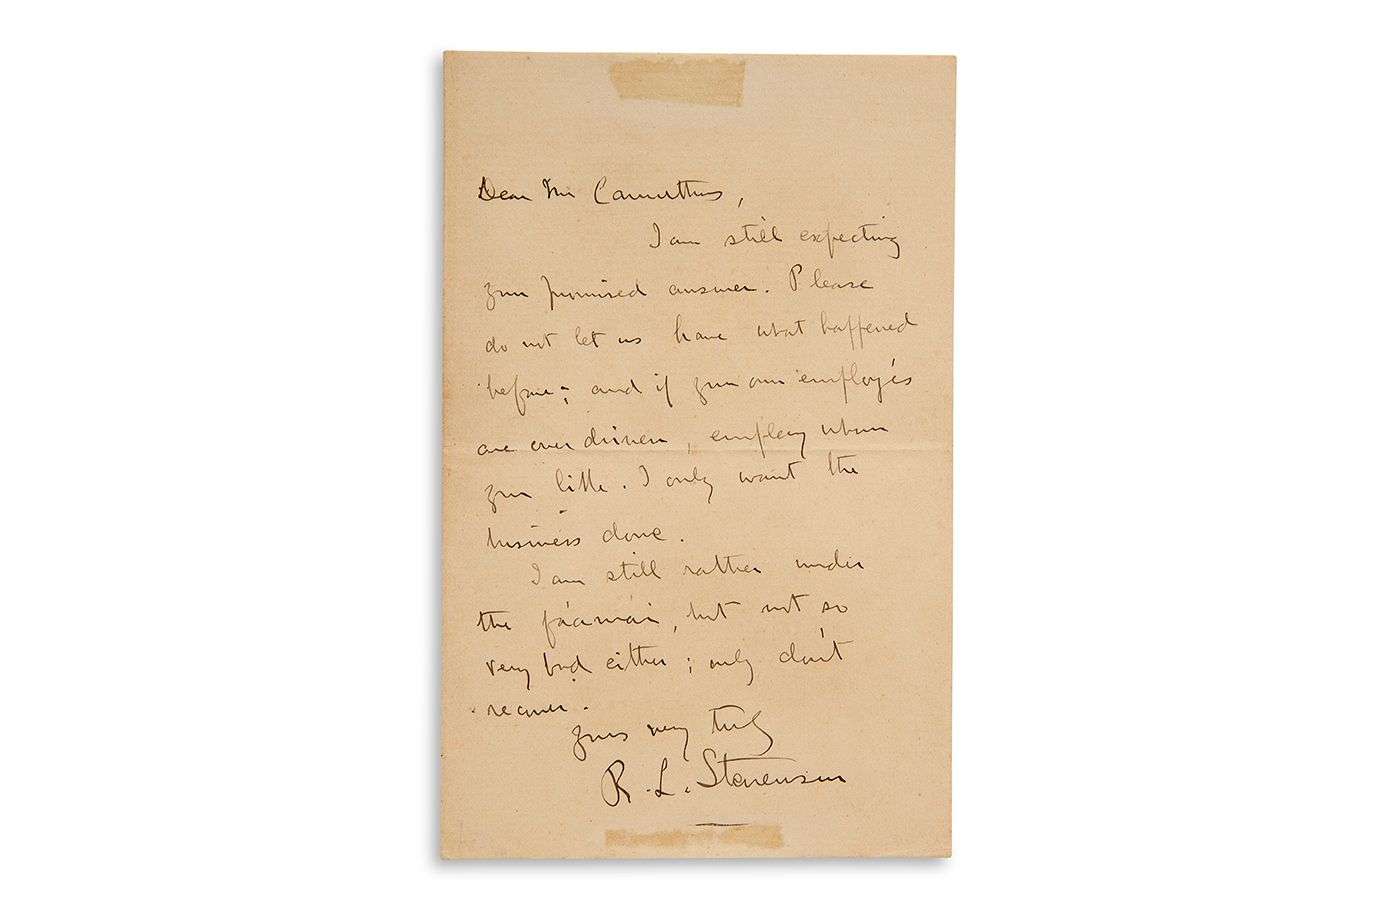 Dear Mr Carruthers,
I am still expecting
your promised answer. Please
do not let us have what happened
before; and if your own employés
are over driven, employ whom
you like. I only want the
business done.
I am still rather under
the fáamái, but not so
very bad either; only don't
recover.
Yours very truly
R. L. Stevenson